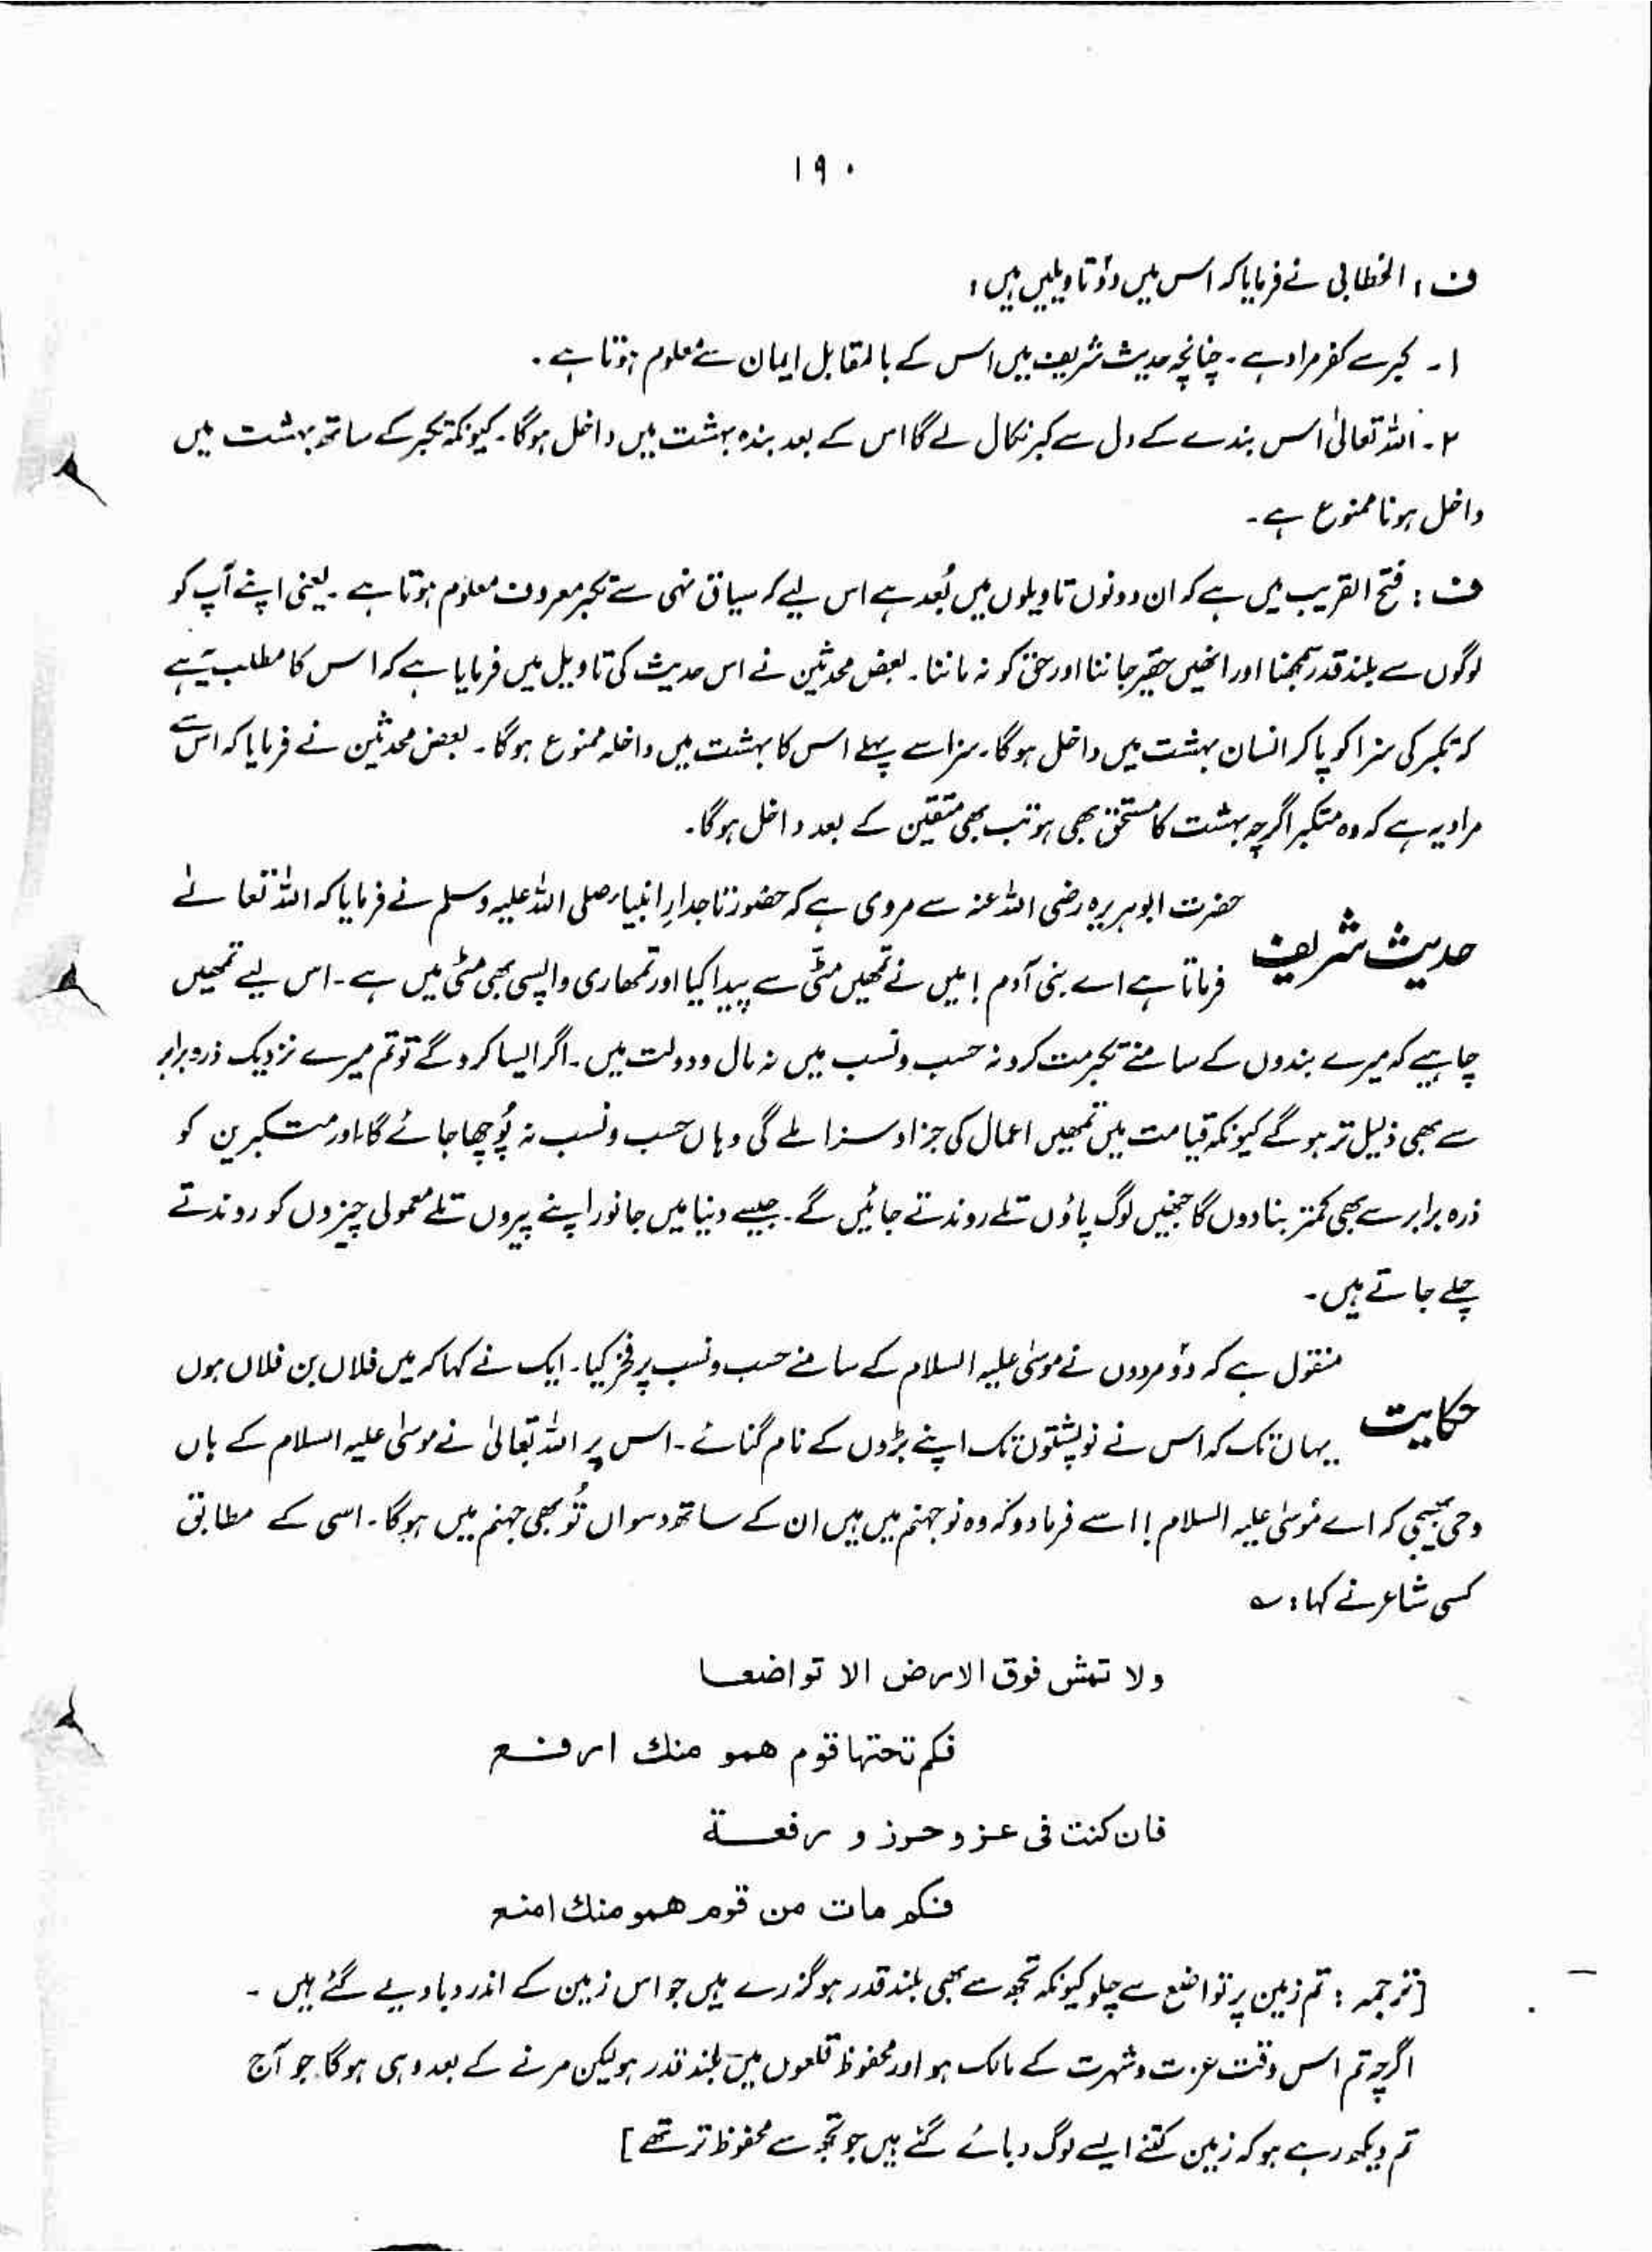 ۱۹۰
ف : الخطابی نے فرمایا کہ اس میں دو تاویلیں ہیں :
۱۔ کبر سے کفر مراد ہے ۔ چنانچہ حدیث شریف میں اس کے بالمقابل ایمان سے معلوم ہوتا ہے ۔
۲۔ اللہ تعالیٰ اس بندے کے دل سے کبر نکال لے گا اس کے بعد بندہ بہشت میں داخل ہوگا۔ کیونکہ تکبر کے ساتھ بہشت میں
داخل ہونا ممنوع ہے ۔
ف : فتح القریب میں ہے کہ ان دونوں تاویلوں میں بُعد ہے اس لیے کہ سیاق نہی سے تکبر معروف معلوم ہوتا ہے ۔ یعنی اپنے آپ کو
لوگوں سے بلند قدر سمجھنا اور انھیں حقیر جاننا اور حق کو نہ ماننا ۔ بعض محدثین نے اس حدیث کی تاویل میں فرمایا ہے کہ اس کا مطلب یہ ہے
کہ تکبر کی سزا کو پا کر انسان بہشت میں داخل ہوگا۔ سزا سے پہلے اس کا بہشت میں داخلہ ممنوع ہوگا ۔ بعض محدثین نے فرمایا کہ اس سے
مراد یہ ہے کہ وہ متکبر اگرچہ بہشت کا مستحق بھی ہو تب بھی متقین کے بعد داخل ہوگا۔
حدیث شریف حضرت ابوہریرہ رضی اللہ عنہ سے مروی ہے کہ حضور تاجدارِ انبیاء صلی اللہ علیہ وسلم نے فرمایا کہ اللہ تعالے
فرماتا ہے اے بنی آدم ! میں نے تمھیں مٹی سے پیدا کیا اور تمھاری واپسی بھی مٹی میں ہے ۔ اس لیے تمھیں
چاہیے کہ میرے بندوں کے سامنے تکبر مت کرو نہ حسب و نسب میں نہ مال و دولت میں ۔ اگر ایسا کرو گے تو تم میرے نزدیک ذرہ برابر
سے بھی ذلیل تر ہو گے کیونکہ قیامت میں تمھیں اعمال کی جزا و سزا ملے گی وہاں حسب و نسب نہ پُوچھا جائے گا، اور متکبرین کو
ذرہ برابر سے بھی کمتر بنا دوں گا جنھیں لوگ پاؤں تلے روندتے جائیں گے ۔ جیسے دنیا میں جانور اپنے پیروں تلے معمولی چیزوں کو روندتے
چلے جاتے ہیں ۔
حکایت منقول ہے کہ دو مردوں نے موسیٰ علیہ السلام کے سامنے حسب و نسب پر فخر کیا ۔ ایک نے کہا کہ میں فلاں بن فلاں ہوں
یہاں تک کہ اس نے نو پشتوں تک اپنے بڑوں کے نام گنائے ۔ اس پر اللہ تعالیٰ نے موسیٰ علیہ السلام کے ہاں
وحی بھیجی کہ اے موسیٰ علیہ السلام ! اسے فرما دو کہ وہ نو جہنم میں ہیں ان کے ساتھ دسواں تُو بھی جہنم میں ہوگا ۔ اسی کے مطابق
کسی شاعر نے کہا : ؎
ولا تمش فوق الارض الا تواضعا
فكم تحتها قوم همو منك ارفع
فان كنت فی عز و حرز و رفعة
فكم مات من قوم همو منك امنع
[ ترجمہ : تم زمین پر تواضع سے چلو کیونکہ تجھ سے بھی بلند قدر ہو گزرے ہیں جو اس زمین کے اندر دبا دیے گئے ہیں ۔
اگرچہ تم اس وقت عزت و شہرت کے مالک ہو اور محفوظ قلعوں میں بلند قدر ہو لیکن مرنے کے بعد وہی ہوگا جو آج
تم دیکھ رہے ہو کہ زمین کتنے ایسے لوگ دبائے گئے ہیں جو تجھ سے محفوظ تر تھے ]